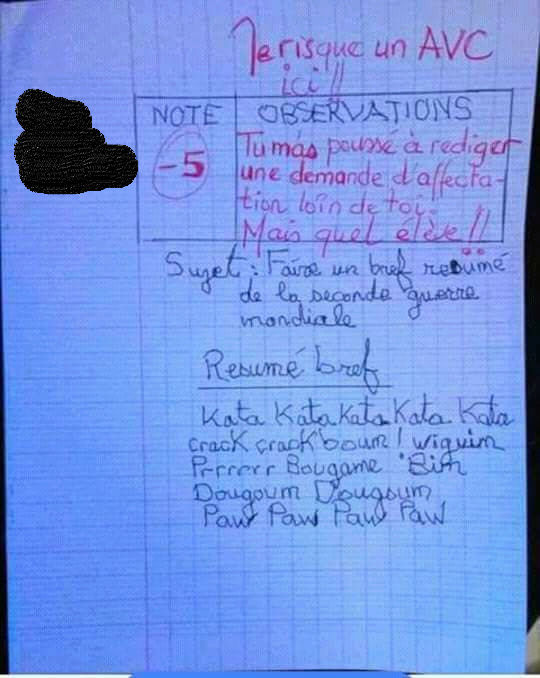 Je risque un AVC
ici !!
NOTE OBSERVATIONS
-5
Tu m'as poussé à rediger
une demande d'affecta-
tion loin de toi.
Mais quel élève !!
Sujet : Faire un bref resumé
de la seconde guerre
mondiale
Resumé bref
Kata Kata Kata Kata Kata
crack crack boum ! wiguim
Prrrrr Bougame Bim
Dougoum Dougoum
Paw Paw Paw Paw